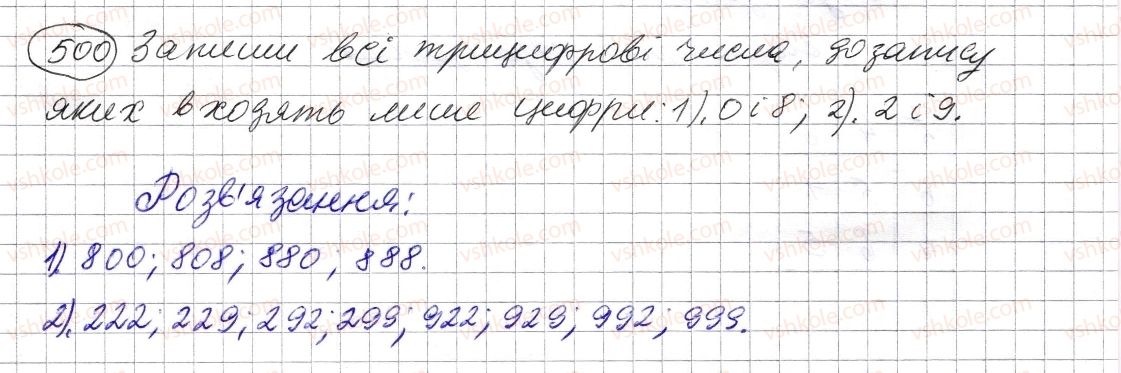 500 Запиши всі трицифрові числа, до запису
яких входять лише цифри: 1). 0 і 8; 2). 2 і 9.
Розв'язання:
1). 800; 808; 880; 888.
2). 222; 229; 292; 299; 922; 929; 992; 999.